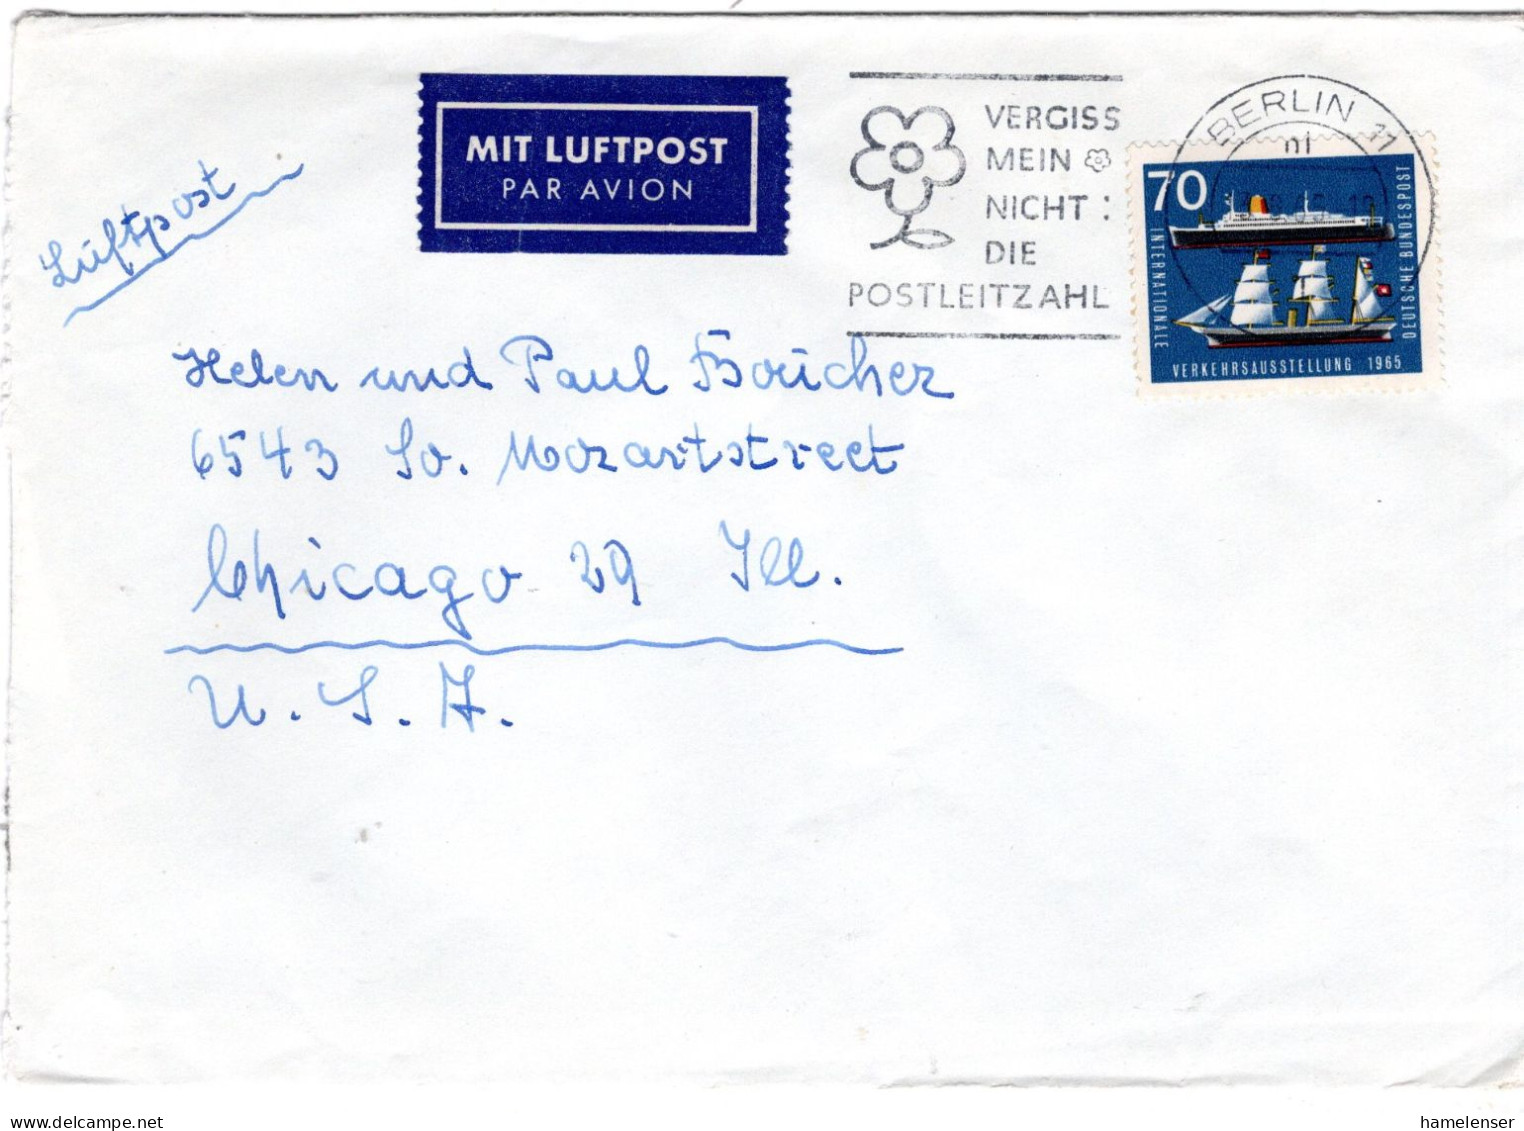 MIT LUFTPOST
PAR AVION
Luftpost
VERGISS
MEIN
NICHT :
DIE
POSTLEITZAHL
BERLIN 11
70
INTERNATIONALE
VERKEHRSAUSSTELLUNG 1965
DEUTSCHE BUNDESPOST
Helen und Paul Boucher
6543 So. Mozartstreet
Chicago 29 Ill.
U. S. A.
www.delcampe.net
hamelenser